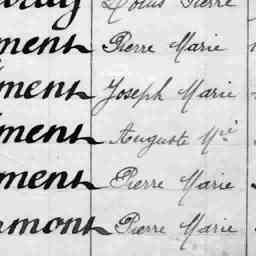 Louis Pierre
ment Pierre Marie
ment Joseph Marie
ment Auguste Mie
ment Pierre Marie
mont Pierre Marie